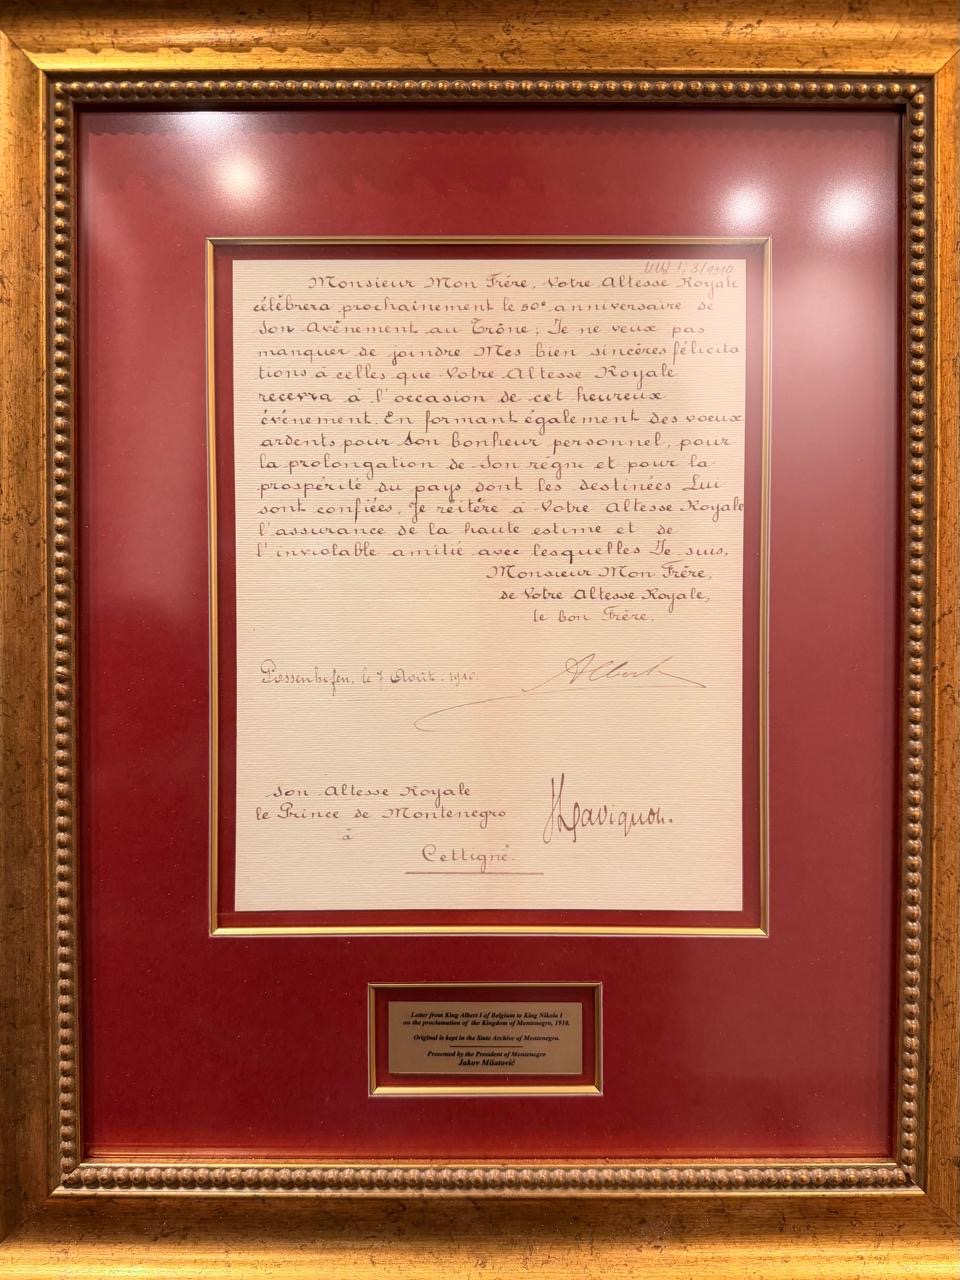 Monsieur Mon Frère, Votre Altesse Royale
célèbrera prochainement le 50e anniversaire de
Son Avènement au Trône; Je ne veux pas
manquer de joindre Mes bien sincères félicita
tions à celles que Votre Altesse Royale
recevra à l'occasion de cet heureux
événement. En formant également des voeux
ardents pour Son bonheur personnel, pour
la prolongation de Son règne et pour la
prospérité du pays dont les destinées Lui
sont confiées, Je réitère à Votre Altesse Royale
l'assurance de la haute estime et de
l'inviolable amitié avec lesquelles Je suis,
Monsieur Mon Frère,
de Votre Altesse Royale,
le bon Frère,
Possenhofen, le 7 Août. 1910.
Albert
Son Altesse Royale
le Prince de Montenegro
à
Cettigné.
Letter from King Albert I of Belgium to King Nikola I
on the proclamation of the Kingdom of Montenegro, 1910.
Original is kept in the State Archive of Montenegro.
Presented by the President of Montenegro
Jakov Milatović